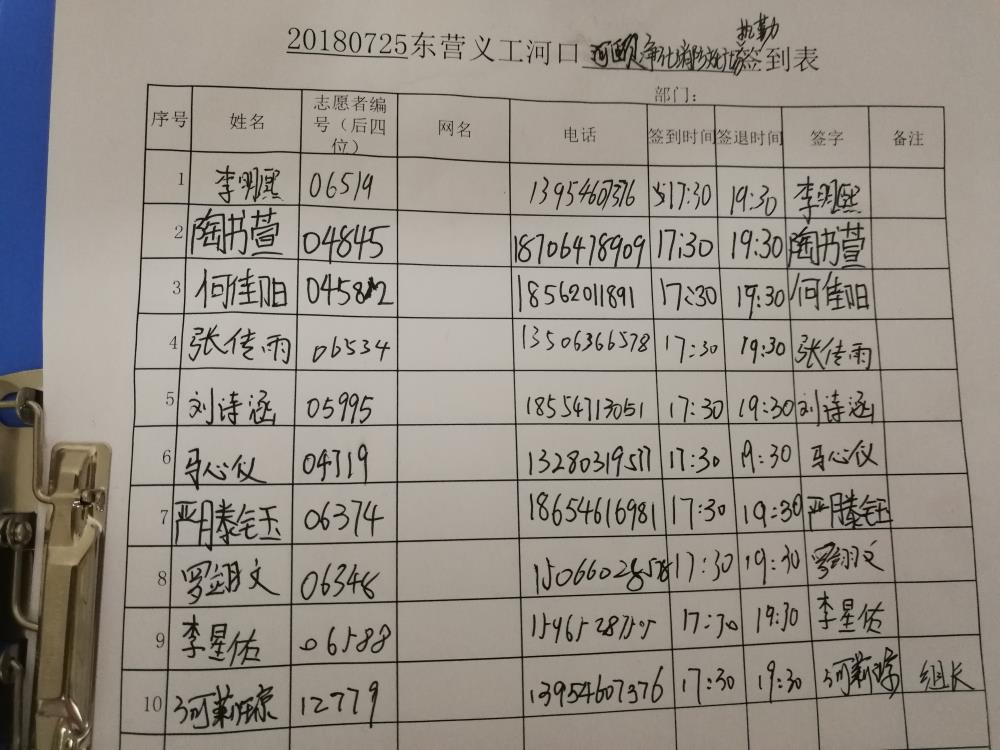 执勤
20180725东营义工河口 签到表
部门:
序号 姓名 志愿者编号（后四位） 网名 电话 签到时间 签退时间 签字 备注
1 李明熙 06519 13954607376 17:30 19:30 李明熙
2 陶书萱 04845 18706478909 17:30 19:30 陶书萱
3 何佳阳 18562011891 17:30 19:30 何佳阳
4 张传雨 06534 13506366578 17:30 19:30 张传雨
5 刘诗涵 05995 18554713051 17:30 19:30 刘诗涵
6 马心仪 04719 13280319577 17:30 19:30 马心仪
7 严滕钰 06374 18654616981 17:30 19:30 严滕钰
8 罗翊文 06348 15066028578 17:30 19:30 罗翊文
9 李星佑 06588 17:30 19:30 李星佑
10 12779 13954607376 17:30 19:30 组长